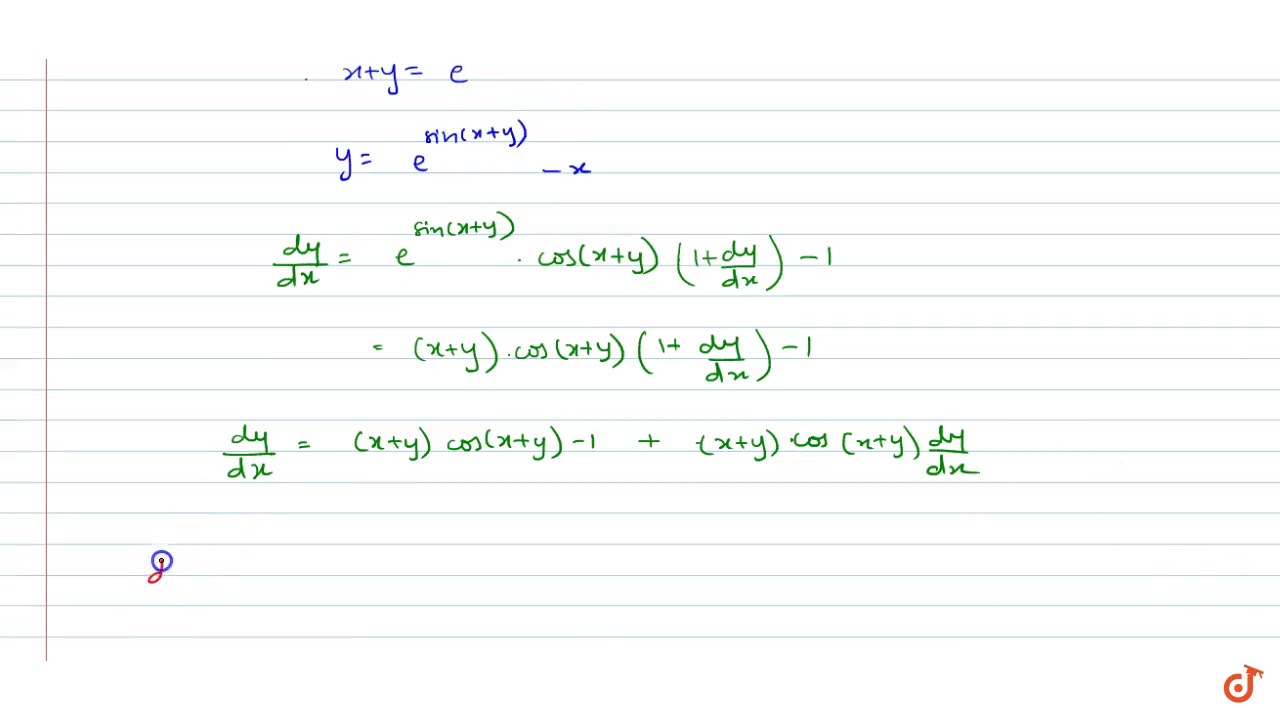 x+y = e
y = e^{sin(x+y)} - x
dy/dx = e^{sin(x+y)} . cos(x+y) (1 + dy/dx) - 1
= (x+y) . cos(x+y) (1 + dy/dx) - 1
dy/dx = (x+y) cos(x+y) - 1 + (x+y) . cos(x+y) dy/dx
d